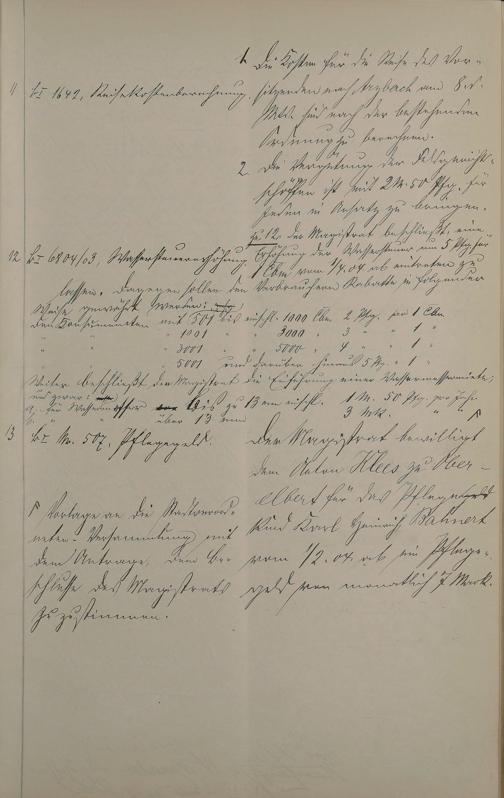 1. Die Kosten für die Reise des Vor-
11 b I 1642, Reisekostenberechnung.
sitzenden nach Arzbach am 8. d.
Mts. sind nach der bestehenden
Ordnung zu berechnen.
2. Die Vergütung der Feldgericht-
schöffen ist mit 2 M. 50 Pfg. für
jeden in Ansatz zu bringen.
zu 12. Der Magistrat beschließt, eine
12 b I 6804/03, Wassersteuererhöhung.
Erhöhung der Wassersteuer um 5 Pfg. für
1 Cbm vom 1/4. 04 ab eintreten zu
lassen. Dagegen sollen den Verbrauchern Rabatte in folgender
Weise gewährt werden:
den Konsumenten mit 501 bis einschl. 1000 Cbm 2 Pfg. pro 1 Cbm
" " " 1001 " 3000 " 3 " " 1 "
" " " 3001 " 5000 " 4 " " 1 "
" " " 5001 und darüber hinaus 5 Pfg. " 1 "
Weiter beschließt der Magistrat die Einführung einer Wassermessermiete,
und zwar:
a, für Wassermesser bis zu 13 mm einschl. 1 M. 50 Pfg. pro Jahr
b, " " über 13 mm 3 Mk. " "
13 b I No. 507, Pflegegeld.
Der Magistrat bewilligt
dem Anton Klees zu Ober-
elbert für das Pflege
Kind Karl Heinrich
vom 1/2. 04. ab ein Pflege-
geld von monatlich 7 Mark.
Vorlage an die Stadtverord-
neten-Versammlung mit
dem Antrage, dem Be-
schlusse des Magistrats
zuzustimmen.